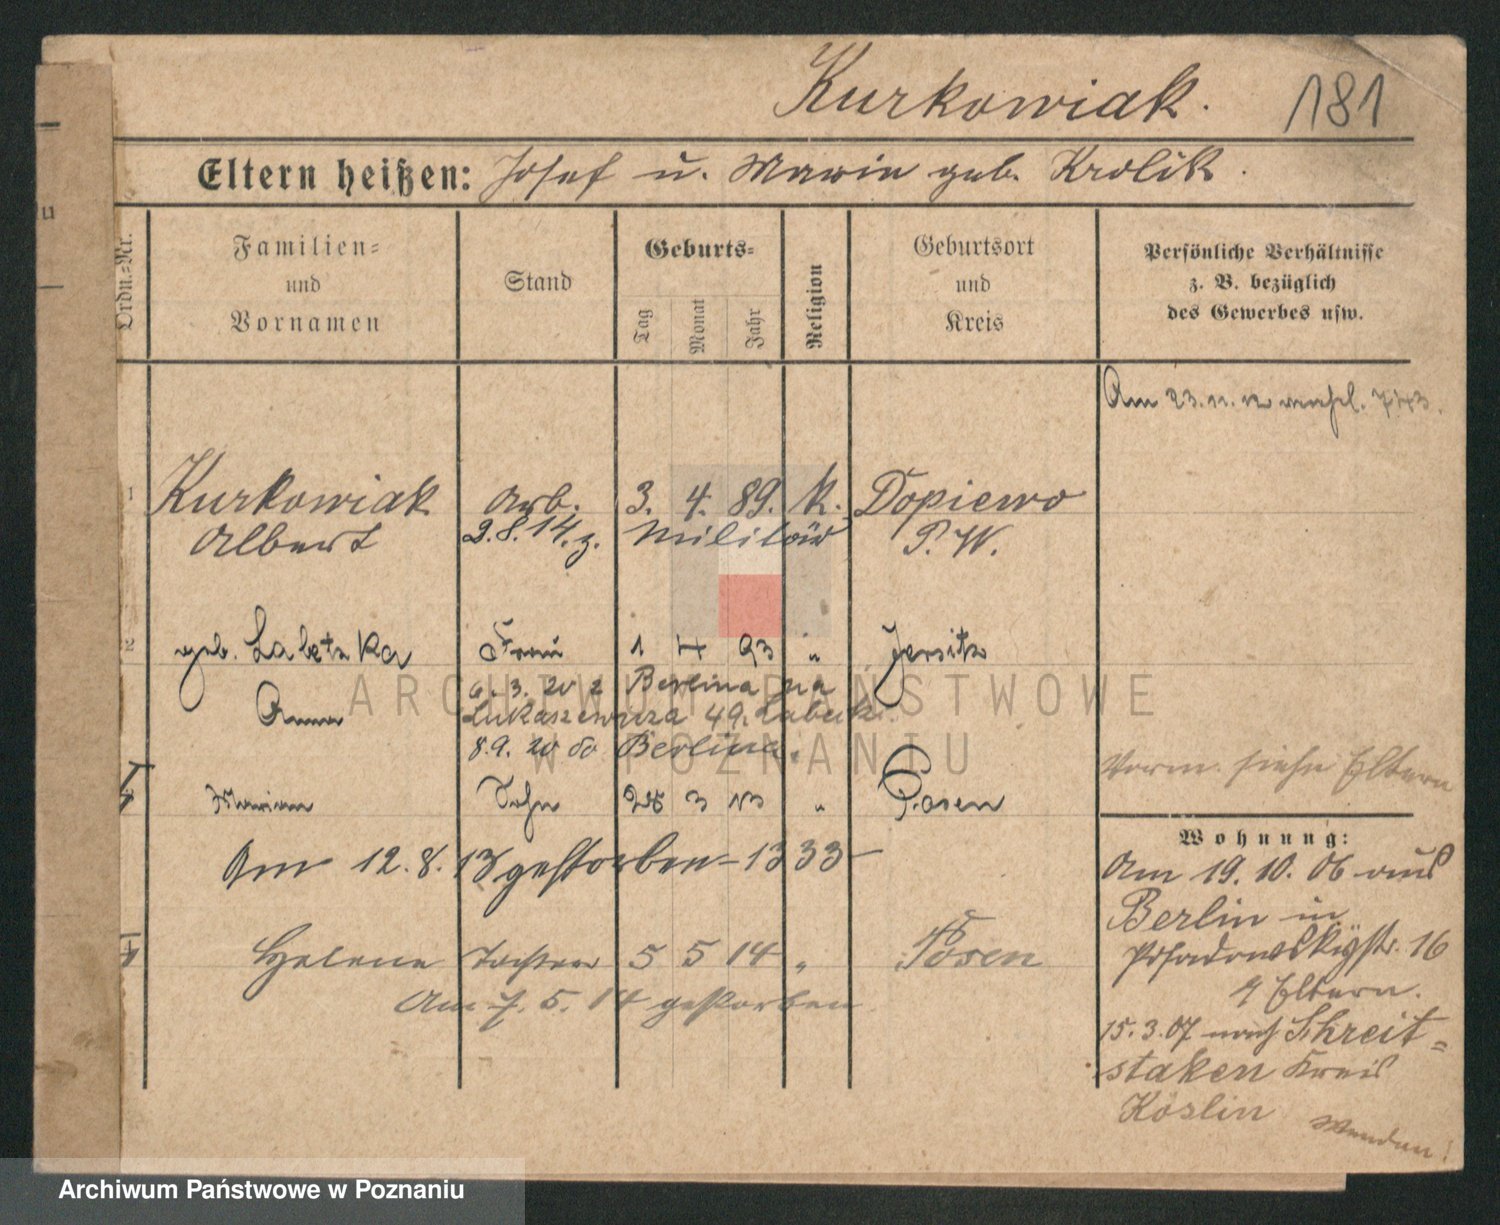 Kurkowiak.
181
Eltern heißen: Josef u. Maria geb. Krolik.
u
Ordn.=Nr.
Familien=
und
Vornamen
Stand
Geburts=
Tag
Monat
Jahr
Religion
Geburtsort
und
Kreis
Persönliche Verhältnisse
z. B. bezüglich
des Gewerbes usw.
Am 23. 11. 12 743.
1 Kurkowiak Arb. 3. 4. 89. k. Dopiewo
Albert 2.8.14. z. Militär P. W.
2 geb. Labetzka Frau 1 4 93 " Jersitz
6. 3. 20 z Berlina na
Anna Łukaszewicza 49.
8.9. 20 do Berlina.
Marian Sohn 28 3 13 " Posen
Am 12. 8. 13 gestorben – 1333 –
Helene Tochter 5 5 14 " Posen
Am 7. 5. 14 gestorben
Vorm. siehe Eltern
Wohnung:
Am 19. 10. 06 aus
Berlin in
Posadowskystr. 16
Eltern.
15. 3. 07 nach Schreit=
staken Kreis
Köslin
Wenden!
ARCHIWUM PAŃSTWOWE
W POZNANIU
Archiwum Państwowe w Poznaniu